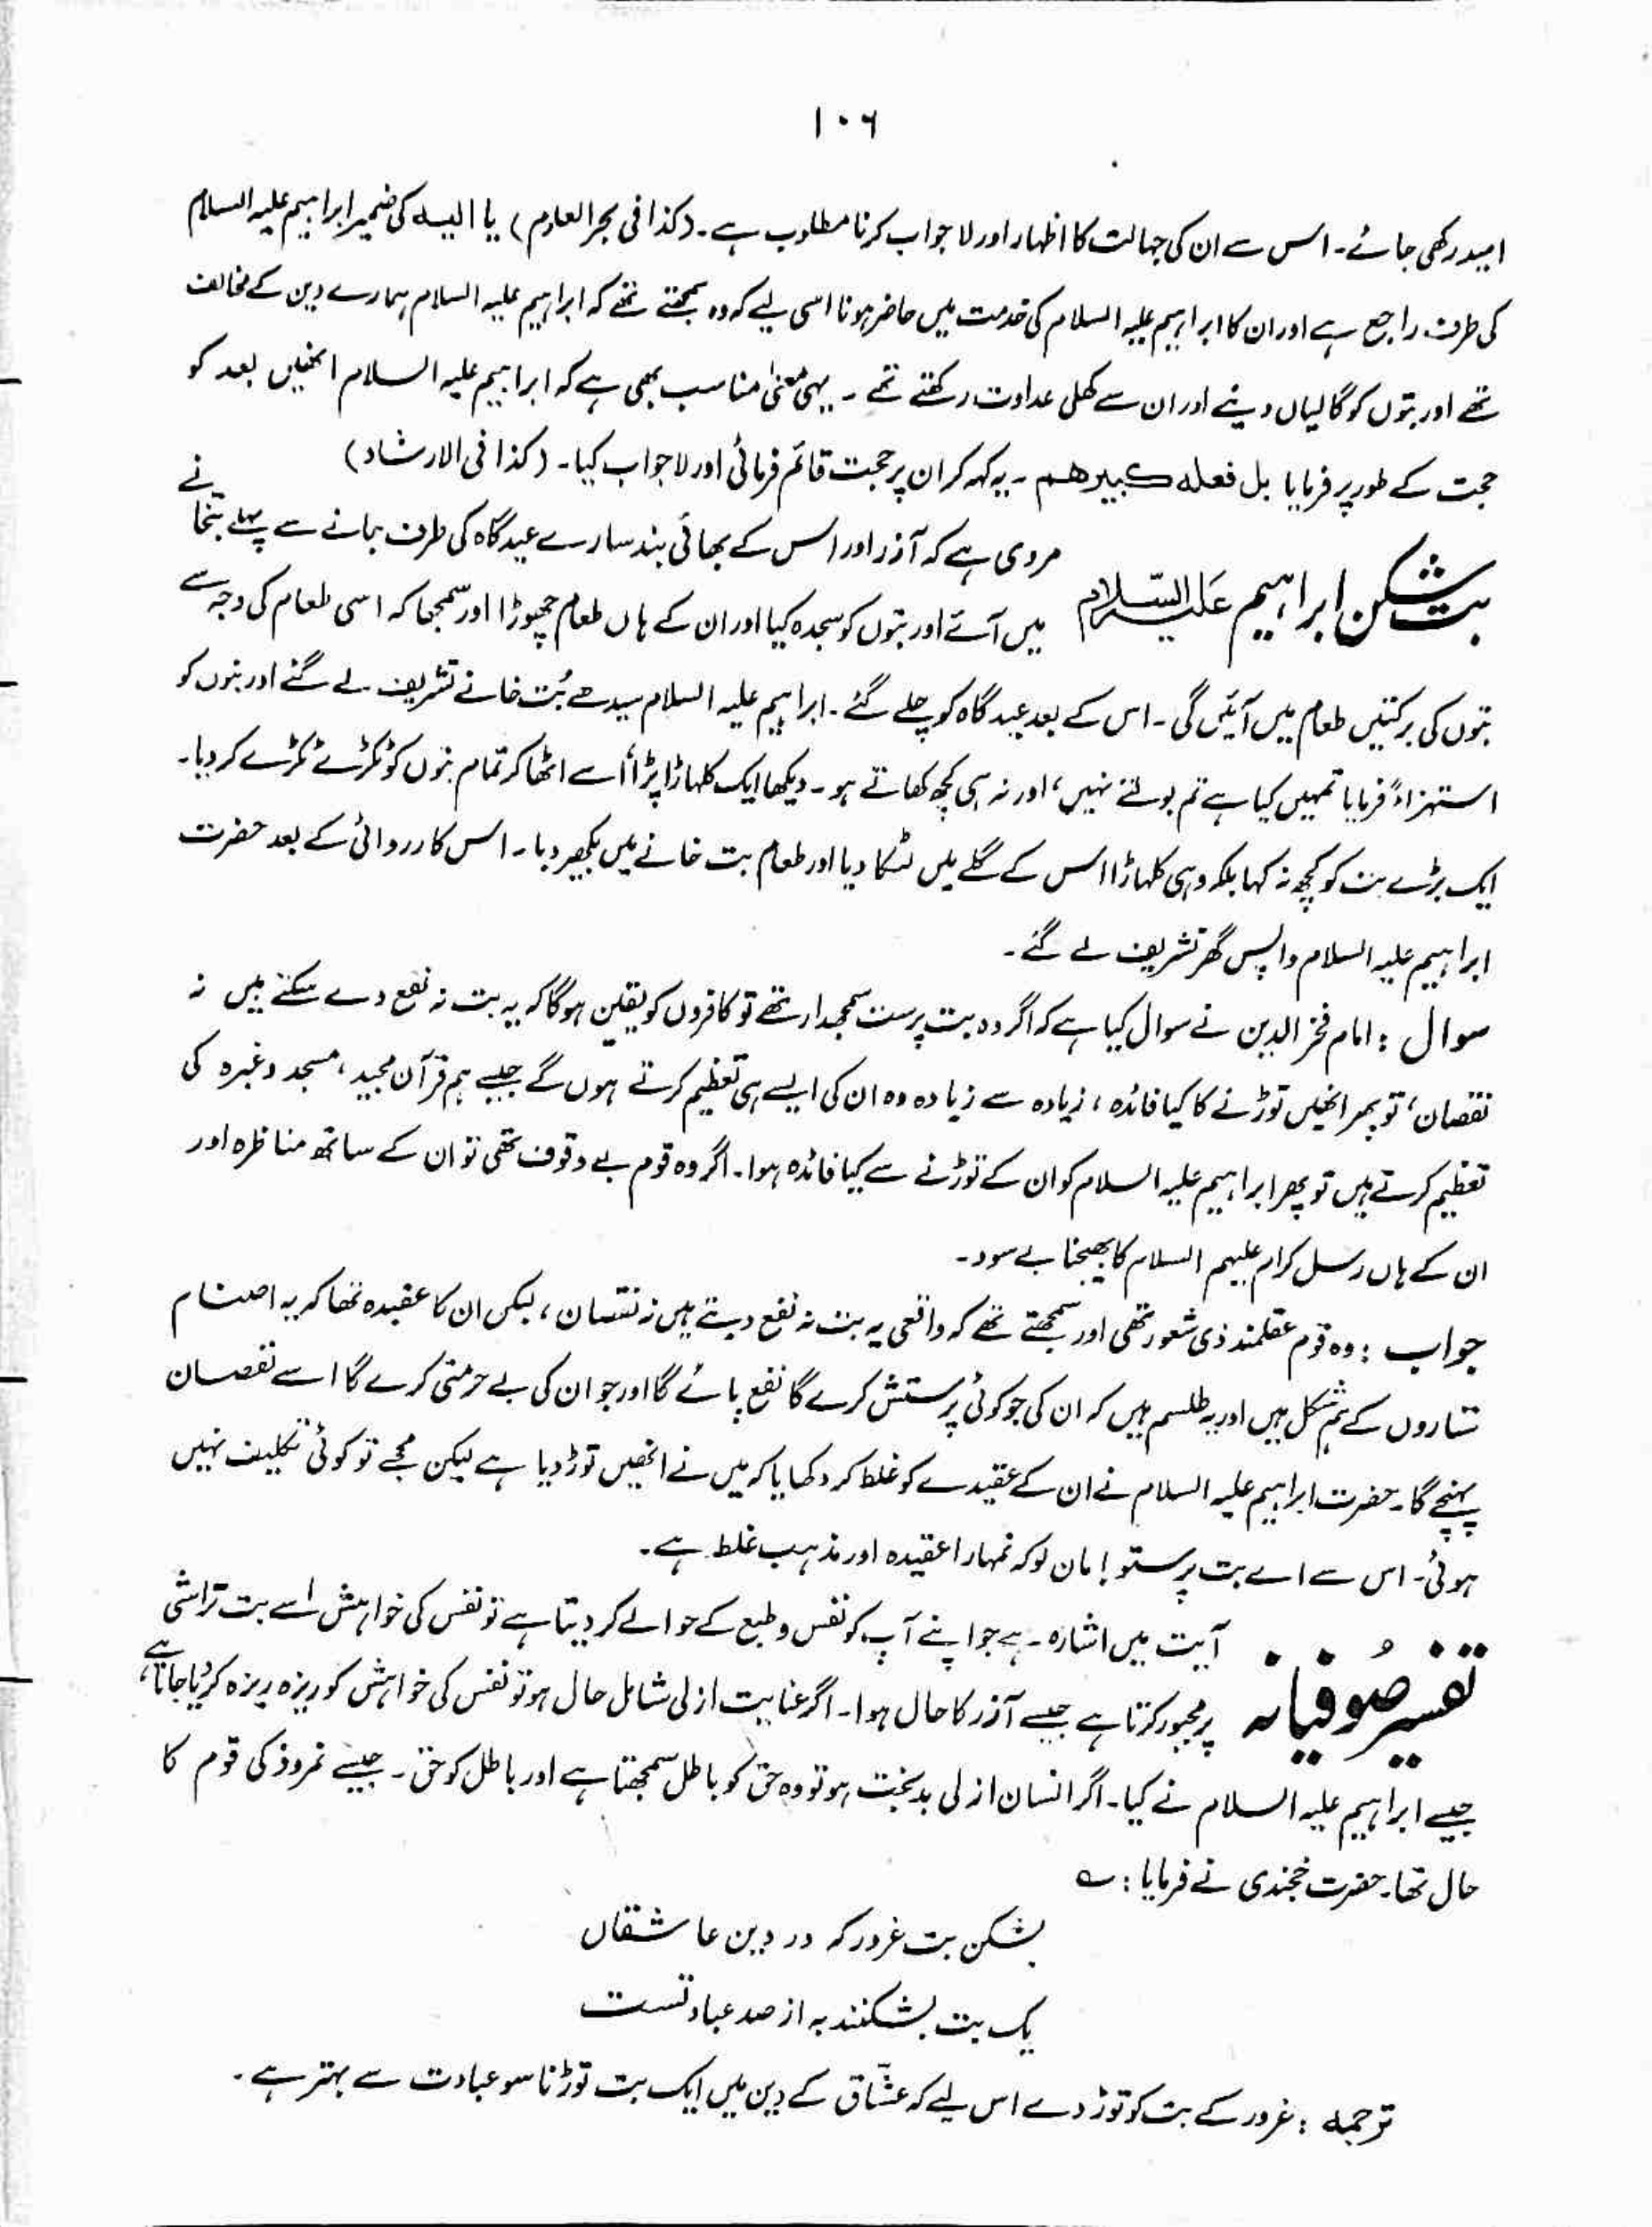 ۱۰۶
امید رکھی جائے۔ اس سے ان کی جہالت کا اظہار اور لاجواب کرنا مطلوب ہے۔ (کذا فی بحر العلوم) یا الیہ کی ضمیر ابراہیم علیہ السلام
کی طرف راجع ہے اور ان کا ابراہیم علیہ السلام کی خدمت میں حاضر ہونا اسی لیے کہ وہ سمجھتے تھے کہ ابراہیم علیہ السلام ہمارے دین کے مخالف
تھے اور بتوں کو گالیاں دیتے اور ان سے کھلی عداوت رکھتے تھے ۔ یہی معنیٰ مناسب بھی ہے کہ ابراہیم علیہ السلام انھیں بعد کو
حجت کے طور پر فرمایا بل فعلہ کبیرھم ۔ یہ کہہ کر ان پر حجت قائم فرمائی اور لاجواب کیا۔ (کذا فی الارشاد)
بت شکن ابراہیم عَلَیہِ السَّلام مروی ہے کہ آذر اور اس کے بھائی بند سارے عیدگاہ کی طرف جانے سے پہلے بتخانے
میں آئے اور بتوں کو سجدہ کیا اور ان کے ہاں طعام چھوڑا اور سمجھا کہ اسی طعام کی وجہ سے
بتوں کی برکتیں طعام میں آئیں گی ۔ اس کے بعد عیدگاہ کو چلے گئے ۔ ابراہیم علیہ السلام سیدھے بُت خانے تشریف لے گئے اور بتوں کو
استہزاءً فرمایا تمہیں کیا ہے تم بولتے نہیں، اور نہ ہی کچھ کھاتے ہو ۔ دیکھا ایک کلہاڑا پڑا، اسے اٹھا کر تمام بتوں کو ٹکڑے ٹکڑے کر دیا۔
ایک بڑے بت کو کچھ نہ کہا بلکہ وہی کلہاڑا اس کے گلے میں لٹکا دیا اور طعام بت خانے میں بکھیر دیا ۔ اس کارروائی کے بعد حضرت
ابراہیم علیہ السلام واپس گھر تشریف لے گئے ۔
سوال : امام فخر الدین نے سوال کیا ہے کہ اگر وہ بت پرست سمجھدار تھے تو کافروں کو یقین ہوگا کہ یہ بت نہ نفع دے سکتے ہیں نہ
نقصان، تو پھر انھیں توڑنے کا کیا فائدہ، زیادہ سے زیادہ وہ ان کی ایسے ہی تعظیم کرتے ہوں گے جیسے ہم قرآن مجید، مسجد وغیرہ کی
تعظیم کرتے ہیں تو پھر ابراہیم علیہ السلام کو ان کے توڑنے سے کیا فائدہ ہوا۔ اگر وہ قوم بے وقوف تھی تو ان کے ساتھ مناظرہ اور
ان کے ہاں رسل کرام علیہم السلام کا بھیجنا بے سود۔
جواب : وہ قوم عقلمند ذی شعور تھی اور سمجھتے تھے کہ واقعی یہ بت نہ نفع دیتے ہیں نہ نقصان، لیکن ان کا عقیدہ تھا کہ یہ اصنام
ستاروں کے ہم شکل ہیں اور یہ طلسم ہیں کہ ان کی جو کوئی پرستش کرے گا نفع پائے گا اور جو ان کی بے حرمتی کرے گا اسے نقصان
پہنچے گا۔ حضرت ابراہیم علیہ السلام نے ان کے عقیدے کو غلط کر دکھایا کہ میں نے انھیں توڑ دیا ہے لیکن مجھے تو کوئی تکلیف نہیں
ہوئی۔ اس سے اے بت پرستو! مان لو کہ تمہارا عقیدہ اور مذہب غلط ہے۔
تفسیر صُوفیانہ آیت میں اشارہ ہے جو اپنے آپ کو نفس و طبع کے حوالے کر دیتا ہے تو نفس کی خواہش اسے بت تراشی
پر مجبور کرتا ہے جیسے آذر کا حال ہوا۔ اگر عنایت ازلی شامل حال ہو تو نفس کی خواہش کو ریزہ ریزہ کر دیا جاتا ہے،
جیسے ابراہیم علیہ السلام نے کیا۔ اگر انسان ازلی بدبخت ہو تو وہ حق کو باطل سمجھتا ہے اور باطل کو حق ۔ جیسے نمروذ کی قوم کا
حال تھا۔ حضرت خجندی نے فرمایا : ؎
بشکن بت غرور کہ در دین عاشقاں
یک بت بشکنند بہ از صد عبادتست
ترجمہ : غرور کے بت کو توڑ دے اس لیے کہ عشّاق کے دین میں ایک بت توڑنا سو عبادت سے بہتر ہے ۔